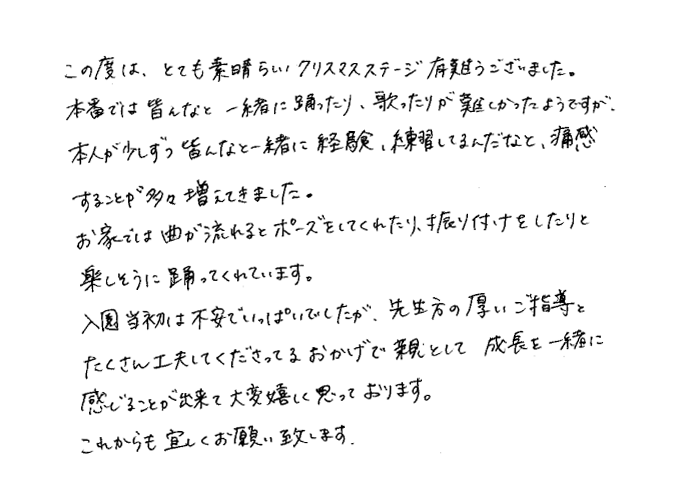 この度は、とても素晴らしいクリスマスステージ有難うございました。
本番では皆んなと一緒に踊ったり、歌ったりが難しかったようですが、
本人が少しずつ皆んなと一緒に経験、練習してるんだなと、痛感
することが多々増えてきました。
お家では曲が流れるとポーズをしてくれたり、振り付けをしたりと
楽しそうに踊ってくれています。
入園当初は不安でいっぱいでしたが、先生方の厚いご指導と
たくさん工夫してくださってるおかげで親として成長を一緒に
感じることが出来て大変嬉しく思っております。
これからも宜しくお願い致します.